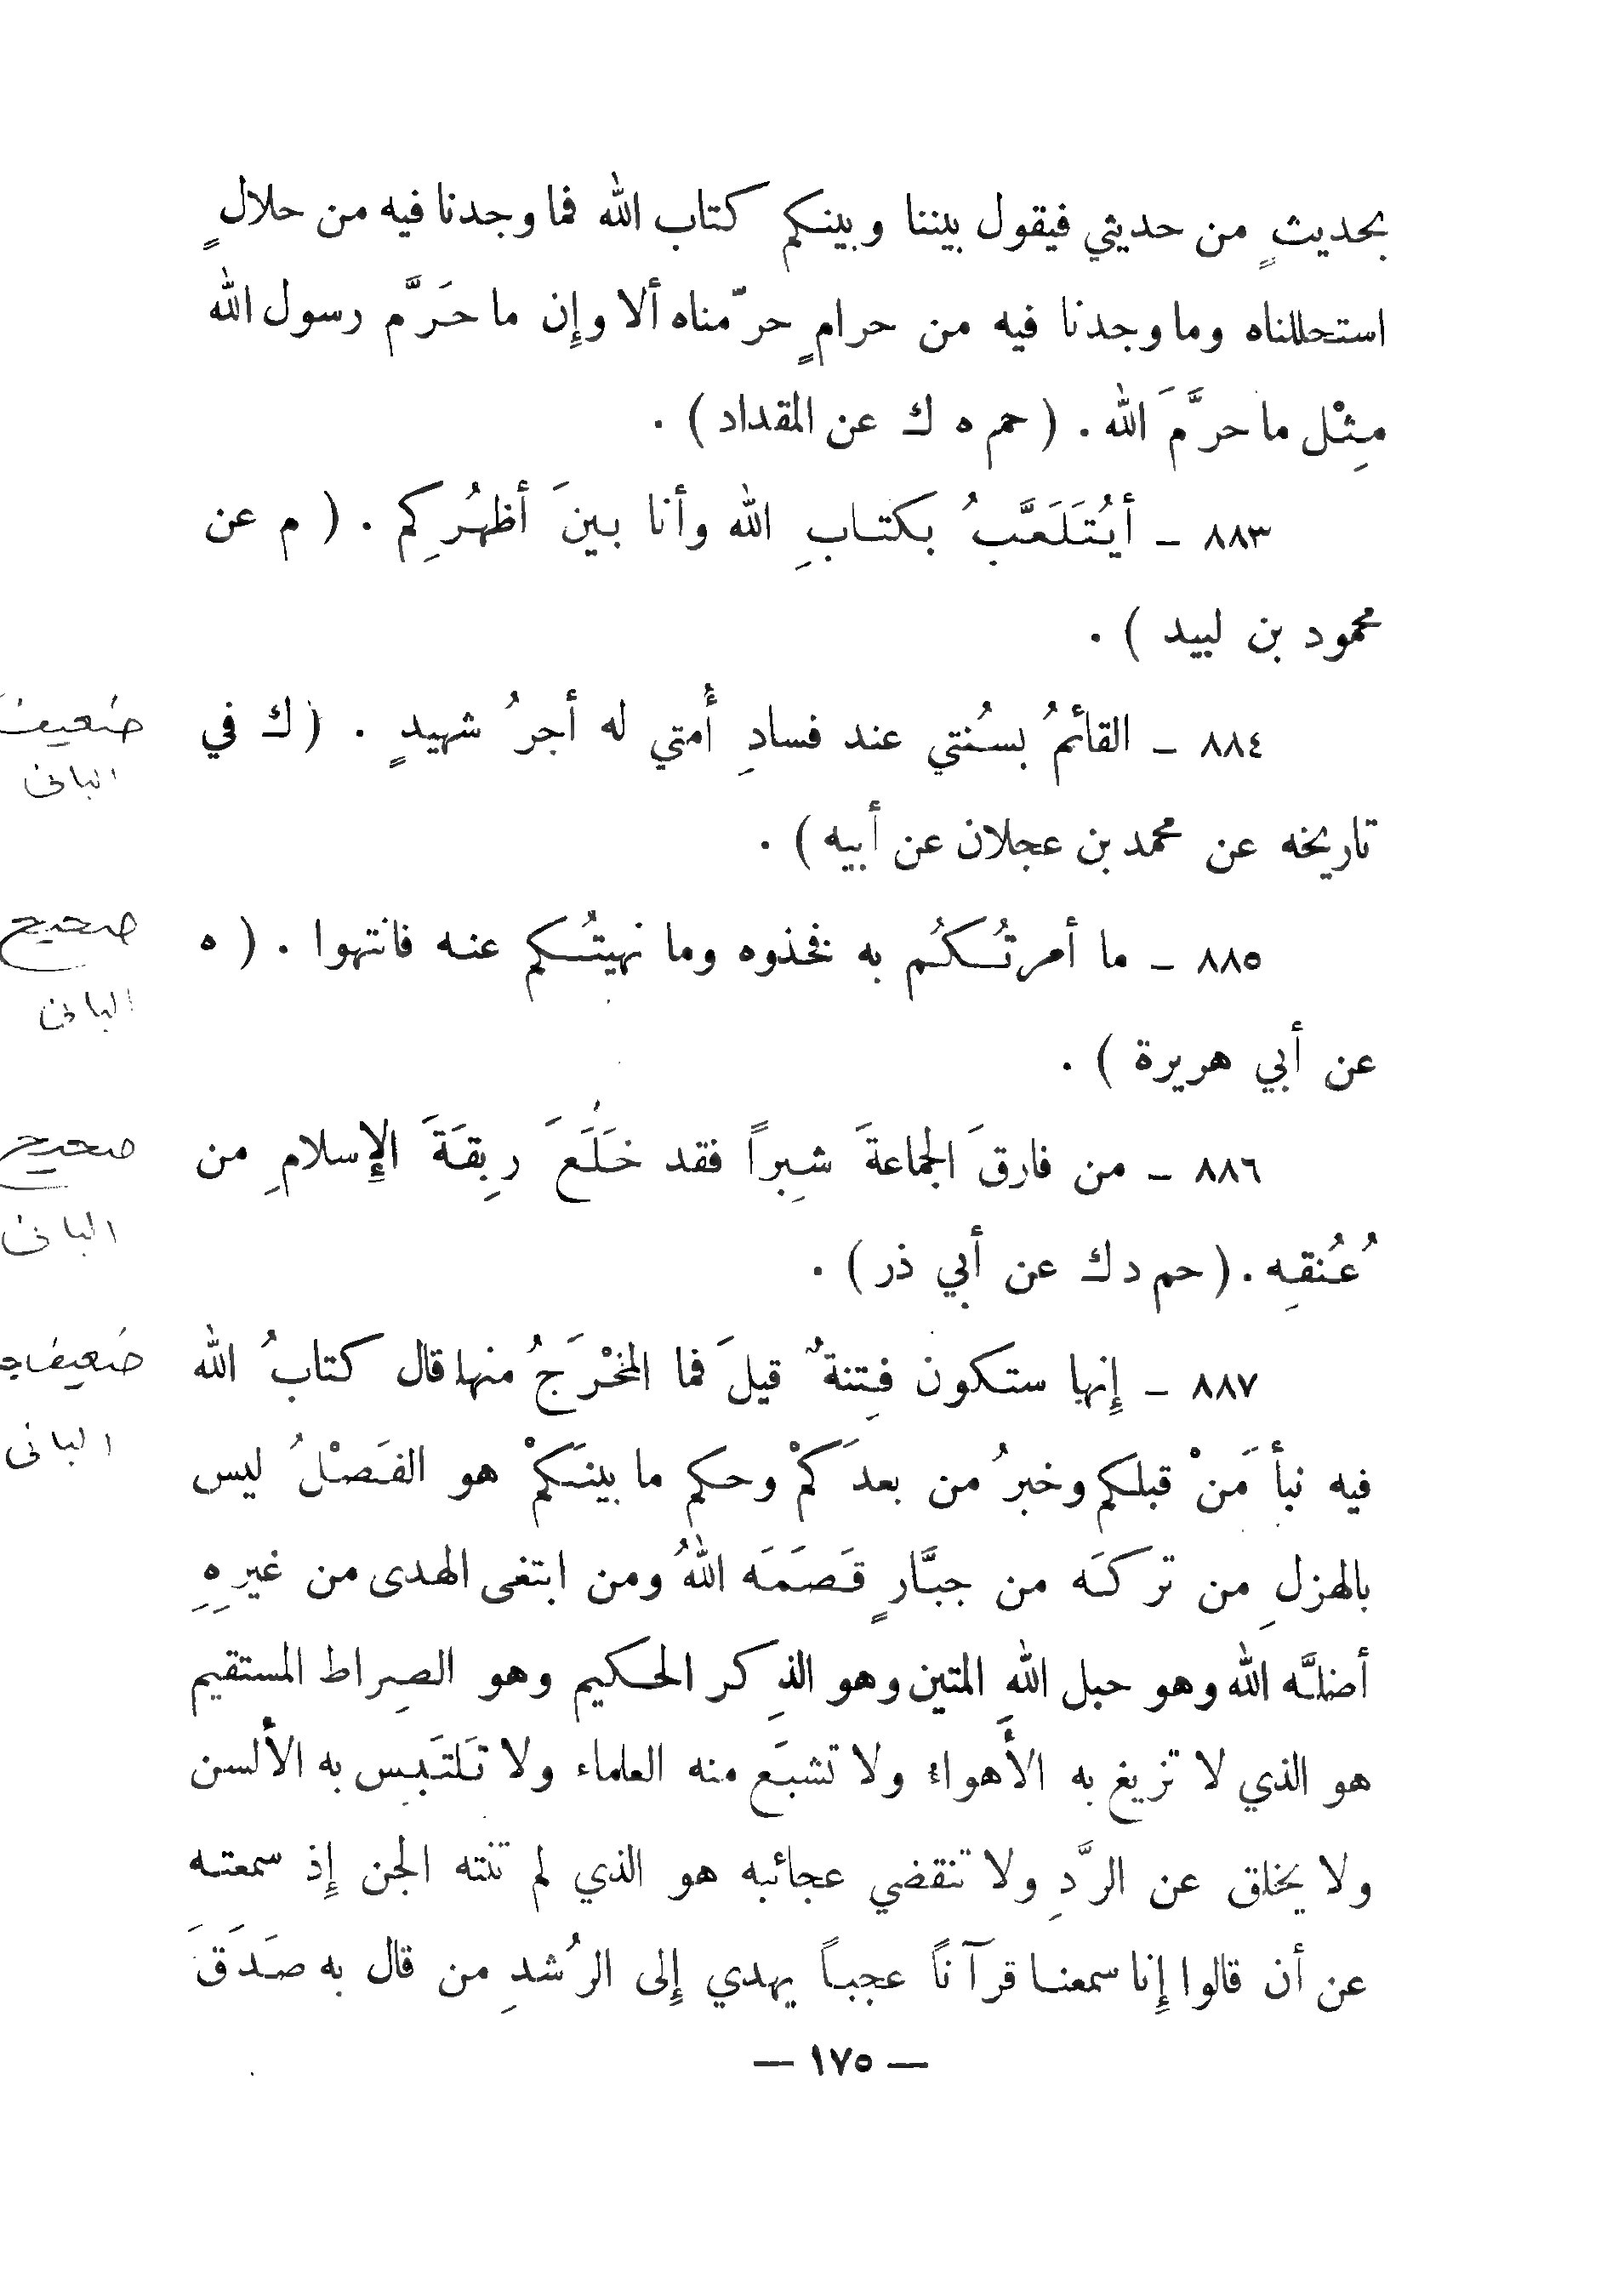 بحديثٍ من حديثي فيقول بيننا وبينكم كتاب الله فما وجدنا فيه من حلالٍ
استحللناه وما وجدنا فيه من حرامٍ حرّمناه ألا وإِن ما حَرَّم رسول الله
مِثْل ما حرَّمَ الله . ( حم ه ك عن المقداد ) .
٨٨٣ – أيُتَلَعَّبُ بكتابِ الله وأنا بينَ أظهُرِكم . ( م عن
محمود بن لبيد ) .
٨٨٤ – القائمُ بسُنتي عند فسادِ أُمتي له أجرُ شهيدٍ . ( ك في
ضعيف
الباني
تاريخه عن محمد بن عجلان عن أبيه ) .
٨٨٥ – ما أمرتُكُم به فخذوه وما نهيتُكم عنه فانتهوا . ( ه
صحيح
الباني
عن أبي هريرة ) .
٨٨٦ – من فارقَ الجماعةَ شِبراً فقد خَلَعَ رِبقَةَ الإِسلامِ من
صحيح
الباني
عُنقِه . ( حم د ك عن أبي ذر ) .
٨٨٧ – إِنها ستكون فِتنةٌ قيلَ فما المخْرَجُ منها قال كتابُ الله
ضعيف
الباني
فيه نبأ مَنْ قبلكم وخبرُ من بعدَكمْ وحكم ما بينَكمْ هو الفَصْلُ ليس
بالهزلِ من تركَه من جبَّارٍ قَصَمَه اللهُ ومن ابتغى الهدى من غيرِهِ
أضلَّه الله وهو حبل الله المتين وهو الذِكر الحكيم وهو الصِراط المستقيم
هو الذي لا تزيغ به الأَهواء ولا تشبَع منه العلماء ولا تَلتَبِس به الألسن
ولا يخلق عن الرَّدِ ولا تنقضي عجائبه هو الذي لم تنته الجن إِذ سمعته
عن أن قالوا إِنا سمعنا قرآناً عجباً يهدي إِلى الرُشدِ من قال به صَدَقَ
— ١٧٥ —